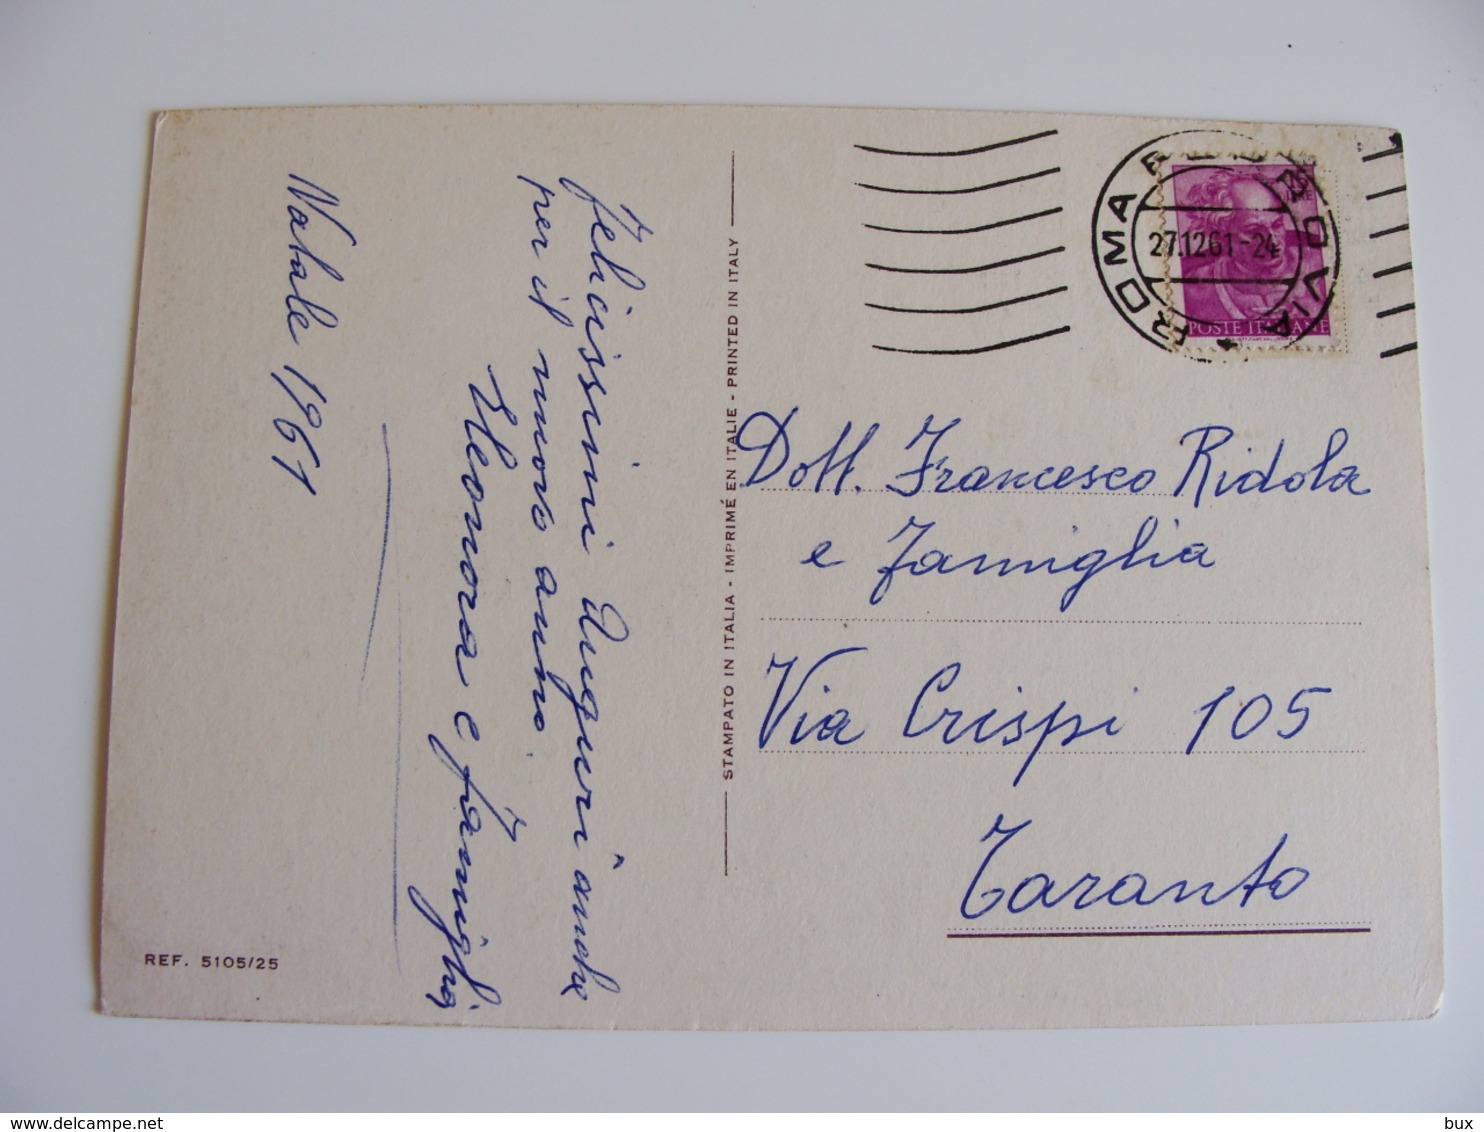 Felicissimi Auguri anche
per il nuovo anno.
Eleonora e famiglia
Natale 1961
REF. 5105/25
STAMPATO IN ITALIA - IMPRIMÉ EN ITALIE - PRINTED IN ITALY
ROMA
27.12.61-24
POSTE ITALIANE
Dott. Francesco Ridola
e famiglia
Via Crispi 105
Taranto
delcampe.net
bux